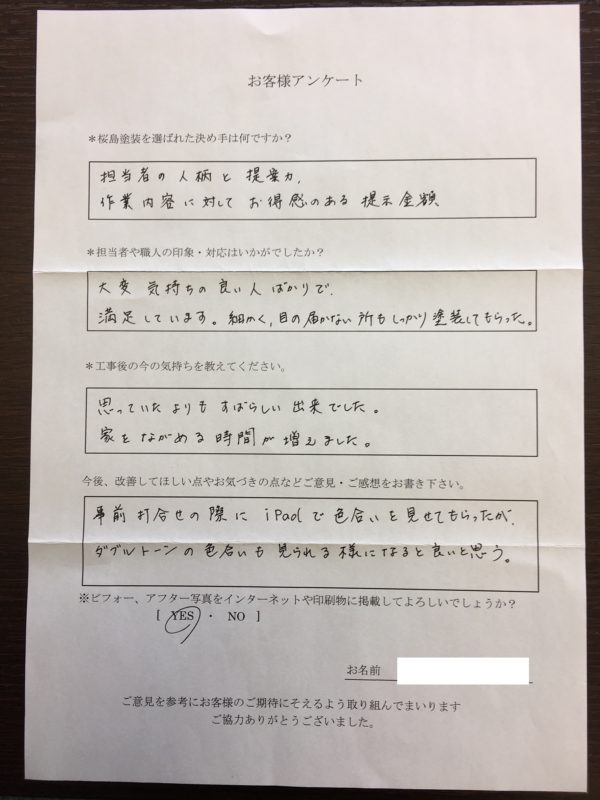 お客様アンケート
＊桜島塗装を選ばれた決め手は何ですか？
担当者の人柄と提案力,
作業内容に対してお得感のある提示金額
＊担当者や職人の印象・対応はいかがでしたか？
大変気持ちの良い人ばかりで,
満足しています。細かく,目の届かない所もしっかり塗装してもらった。
＊工事後の今の気持ちを教えてください。
思っていたよりもすばらしい出来でした。
家をながめる時間が増えました。
今後、改善してほしい点やお気づきの点などご意見・ご感想をお書き下さい。
事前打合せの際にiPadで色合いを見せてもらったが,
ダブルトーンの色合いも見られる様になると良いと思う。
※ビフォー、アフター写真をインターネットや印刷物に掲載してよろしいでしょうか？
[ YES ・ NO ]
お名前
ご意見を参考にお客様のご期待にそえるよう取り組んでまいります
ご協力ありがとうございました。